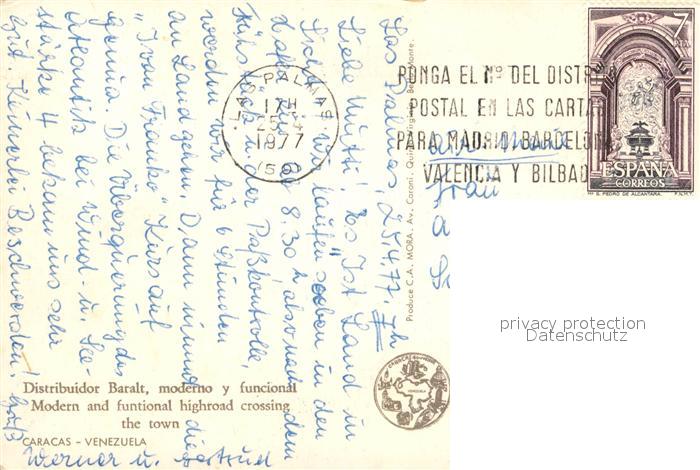 Las Palmas 25.4.77, 7h
Liebe Mutti! Es "Ist Land in
Sicht", wir laufen soeben in den
Hafen ein. 8.30 h also nach dem
Frühstück u. der Paßkontrolle,
werden wir für 6 Stunden
an Land gehen. Dann nimmt die
"Ivan Franko" Kurs auf
Genua. Die Überquerung des
Atlantik bei Wind- u. See-
stärke 4 bekam uns sehr
gut. Keinerlei Beschwerden! Gruß
Werner u. Gertrud
air mail
Frau
LAS PALMAS
17H
25
1977
PONGA EL Nº DEL DISTRI
POSTAL EN LAS CARTA
PARA MADRID, BARCELONA
VALENCIA Y BILBAO
7
PTA
ESPAÑA
CORREOS
S. PEDRO DE ALCANTARA. F.N.M.T.
Produce C.A. MORA. Av. Caroni. Quinta Virginia. Bello Monte.
CARACAS
VENEZUELA
privacy protection
Datenschutz
Distribuidor Baralt, moderno y funcional
Modern and funtional highroad crossing
the town
CARACAS - VENEZUELA